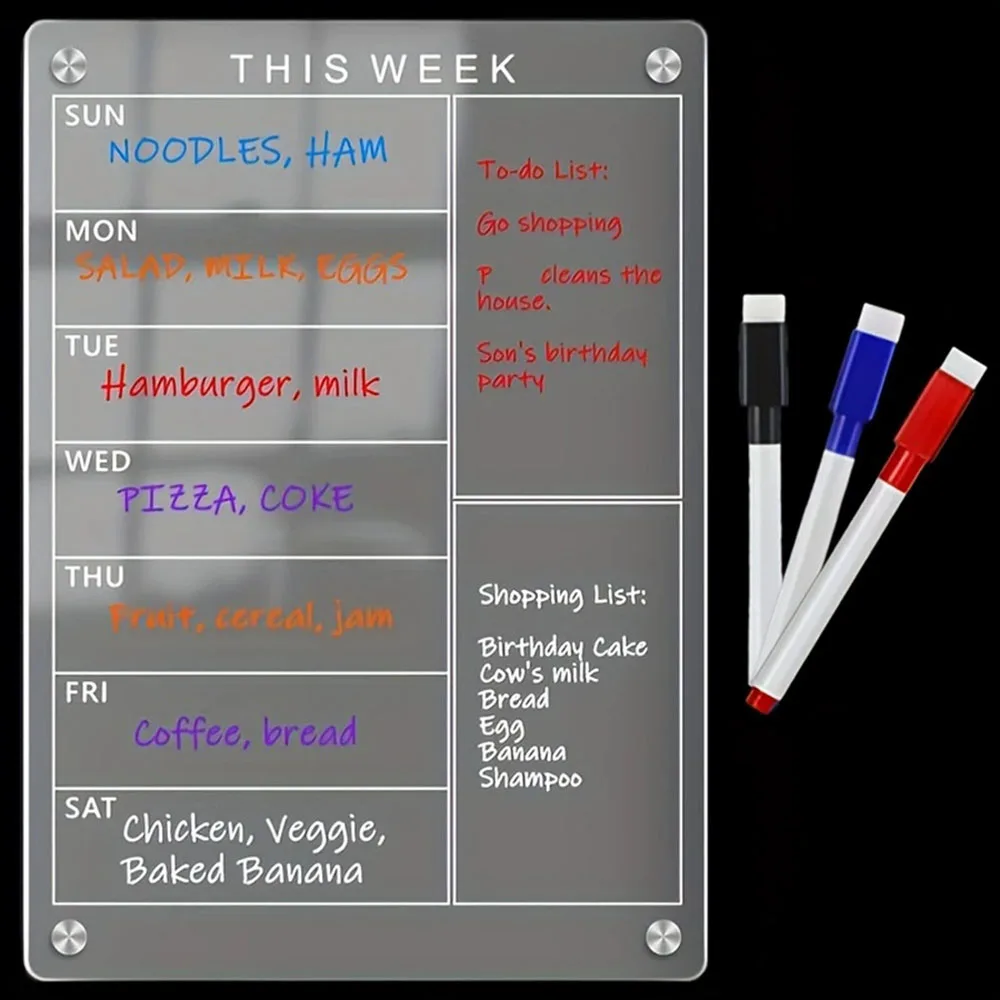 THIS WEEK
SUN
NOODLES, HAM
MON
SALAD, MILK, EGGS
TUE
Hamburger, milk
WED
PIZZA, COKE
THU
Fruit, cereal, jam
FRI
Coffee, bread
SAT
Chicken, Veggie,
Baked Banana
To-do List:
Go shopping
P cleans the
house.
Son's birthday
party
Shopping List:
Birthday Cake
Cow's milk
Bread
Egg
Banana
Shampoo